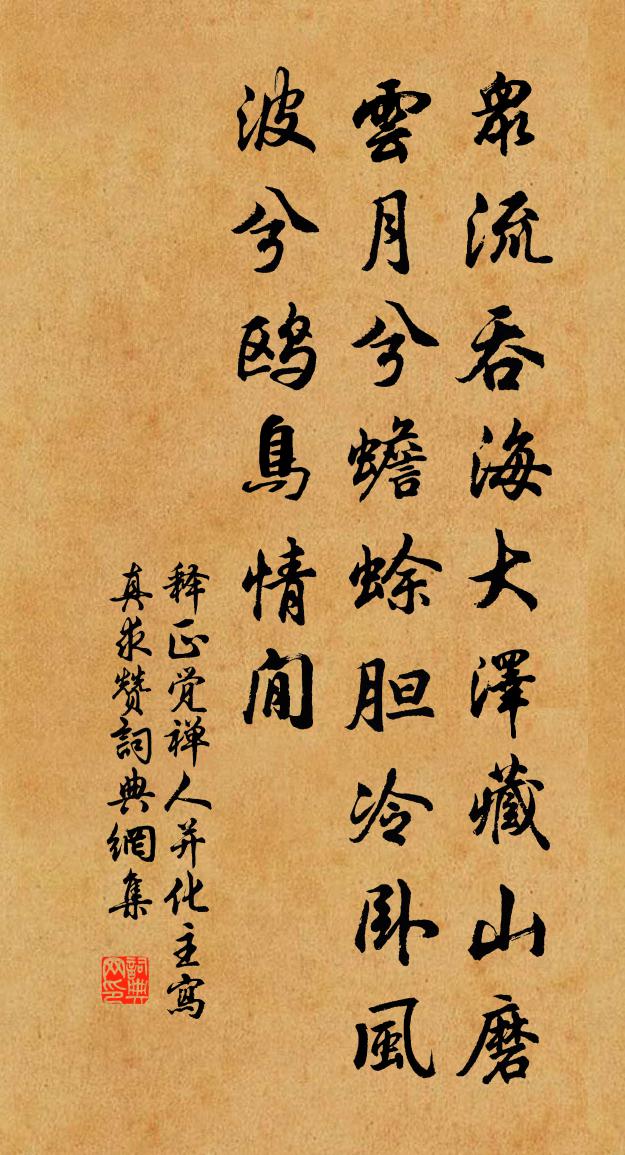 眾流吞海大澤藏山磨
雲月兮蟾蜍胆冷卧風
波兮鸥鳥情閒
释正觉禅人并化主寫
真求赞詞典網集
詞典网印